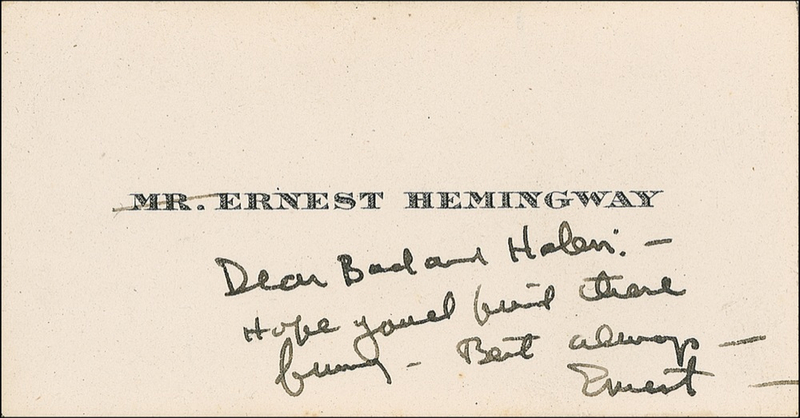 MR. ERNEST HEMINGWAY
Dear Bud and Helen: —
Hope youel find these
funny — Best always —
Ernest —